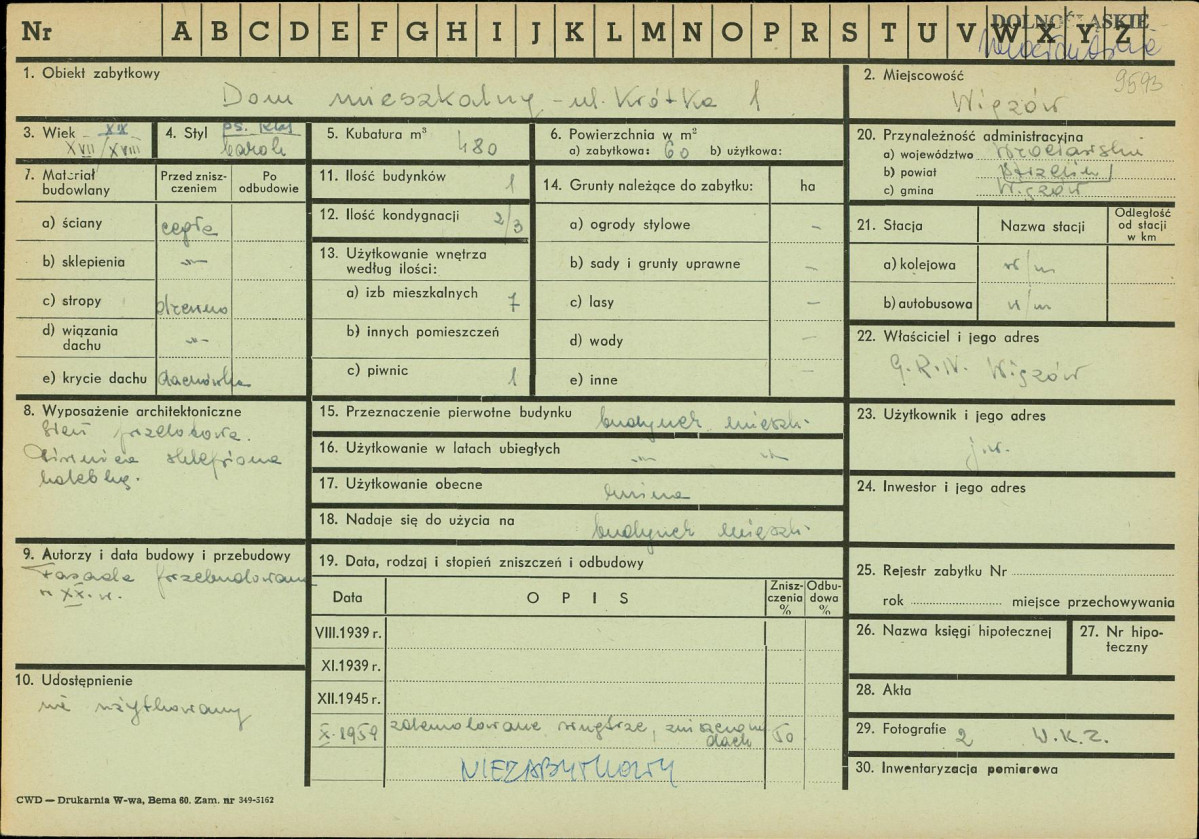 Nr A B C D E F G H I J K L M N O P R S T U V W X Y Z
DOLNOŚLĄSKIE
1. Obiekt zabytkowy
Dom mieszkalny - ul. Krótka 1
2. Miejscowość
9593
Wiązów
3. Wiek XIX
XVII/XVIII
4. Styl ps. klas
barok
5. Kubatura m³
480
6. Powierzchnia w m²
a) zabytkowa: 60 b) użytkowa:
20. Przynależność administracyjna
a) województwo Wrocławskie
b) powiat Strzelin
c) gmina Wiązów
7. Materiał budowlany
Przed zniszczeniem
Po odbudowie
a) ściany cegła
b) sklepienia -"-
c) stropy drewno
d) wiązania dachu -"-
e) krycie dachu dachówka
11. Ilość budynków 1
12. Ilość kondygnacji 2/3
13. Użytkowanie wnętrza według ilości:
a) izb mieszkalnych 7
b) innych pomieszczeń
c) piwnic 1
14. Grunty należące do zabytku: ha
a) ogrody stylowe –
b) sady i grunty uprawne –
c) lasy –
d) wody –
e) inne –
21. Stacja Nazwa stacji Odległość od stacji w km
a) kolejowa w/m
b) autobusowa w/m
22. Właściciel i jego adres
G.R.N. Wiązów
8. Wyposażenie architektoniczne
Sień przelotowa.
Piwnica sklepiona
kolebką.
15. Przeznaczenie pierwotne budynku budynek mieszk.
16. Użytkowanie w latach ubiegłych -"- -"-
17. Użytkowanie obecne ruina
18. Nadaje się do użycia na budynek mieszk.
23. Użytkownik i jego adres
j.w.
24. Inwestor i jego adres
9. Autorzy i data budowy i przebudowy
Fasada przebudowana
w XX. w.
19. Data, rodzaj i stopień zniszczeń i odbudowy
Data OPIS Zniszczenia % Odbudowa %
VIII.1939 r.
XI.1939 r.
XII.1945 r.
X.1959 zdemolowane wnętrze, zniszczony dach 50
NIEZABYTKOWY
25. Rejestr zabytku Nr
rok miejsce przechowywania
26. Nazwa księgi hipotecznej
27. Nr hipoteczny
10. Udostępnienie
nie użytkowany
28. Akta
29. Fotografie 2 W.K.Z.
30. Inwentaryzacja pomiarowa
CWD — Drukarnia W-wa, Bema 60. Zam. nr 349-5162